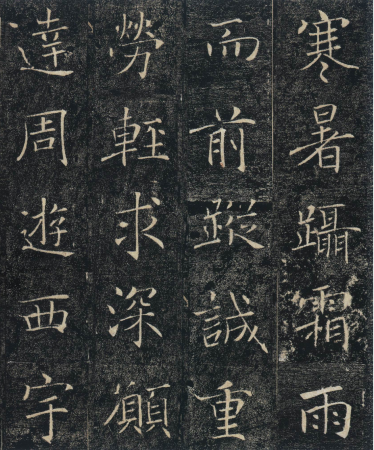 寒暑躡霜雨
而前蹤誠重
勞輕求深願
達周遊西宇